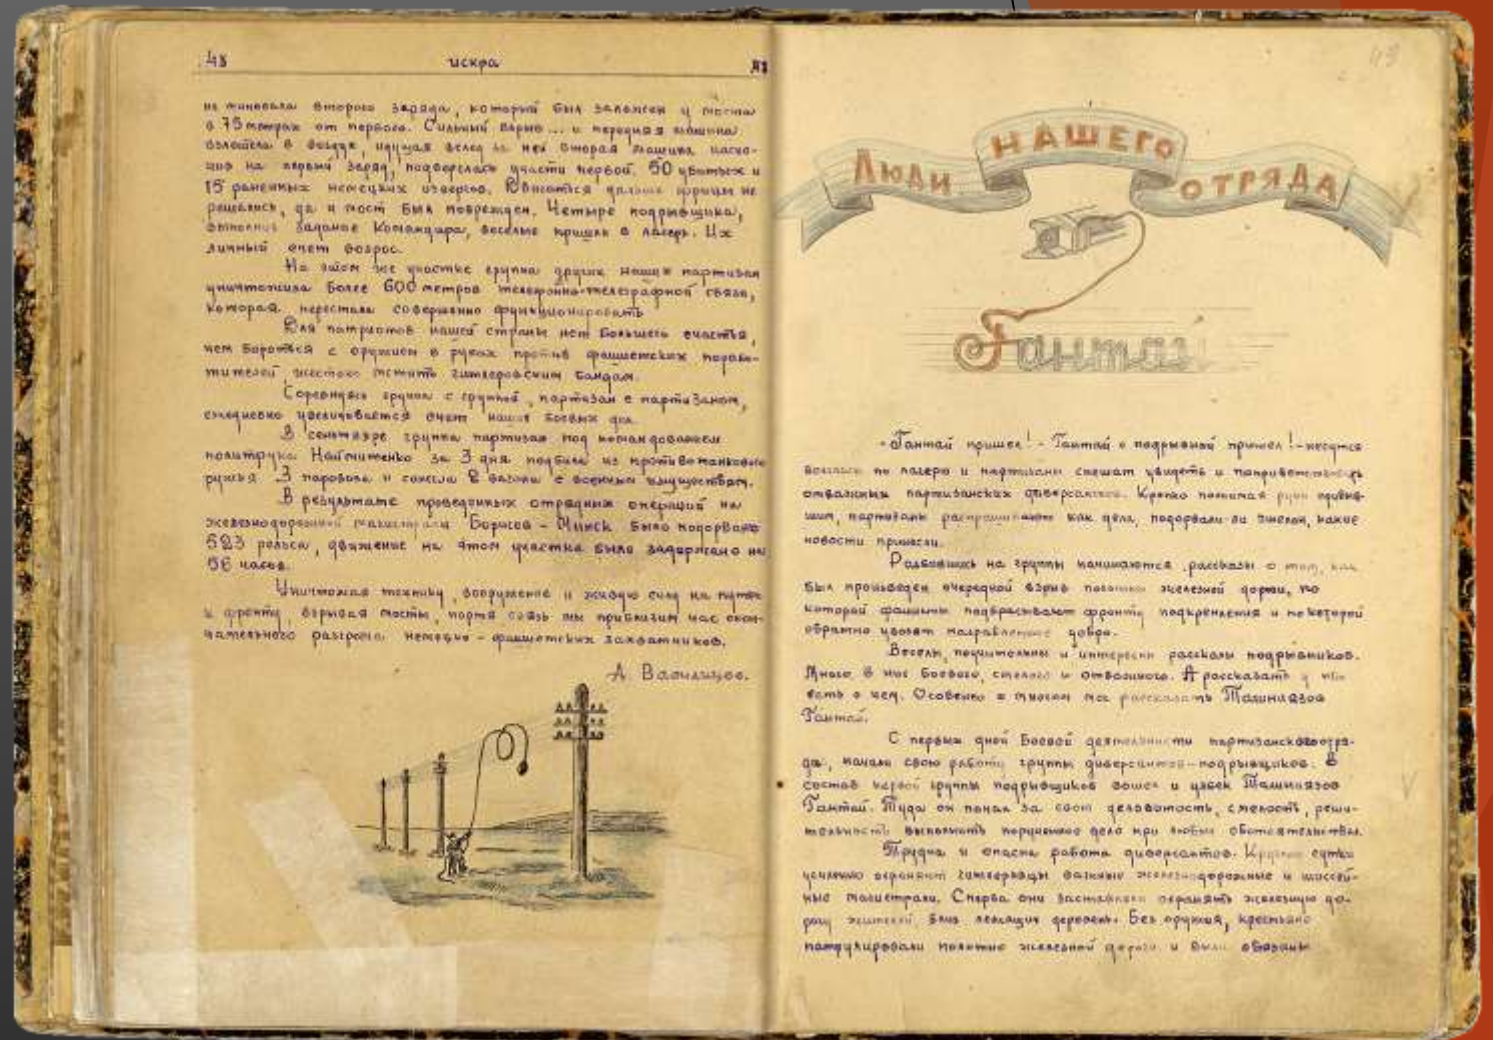 48 искра
не миновала второго заряда, который был заложен у моста
в 75 метрах от первого. Сильный взрыв... и передняя машина
взлетела в воздух, идущая вслед за ней вторая машина наско-
чив на первый заряд, подверглась участи первой. 50 убитых и
15 раненных немецких извергов. Двигаться дальше фрицы не
решались, да и мост был поврежден. Четыре подрывщика,
выполнив задание Командира, веселые пришли в лагерь. Их
личный счет возрос.
На этом же участке группа других наших партизан
уничтожила более 600 метров телефонно-телеграфной связи,
которая перестала совершенно функционировать
Для патриотов нашей страны нет большего счастья,
чем бороться с оружием в руках против фашистских порабо-
тителей, жестоко мстить гитлеровским бандам.
Соревнуясь группа с группой, партизан с партизаном,
ежедневно увеличивается счет наших боевых дел.
В сентябре группа партизан под командованием
политрука за 3 дня подбила из противотанкового
ружья 3 паровоза и сожгла 2 вагона с военным имуществом.
В результате проведенных отрядных операций на
железнодорожной магистрали Борисов - Минск было подорвано
523 рельса, движение на этом участке было задержано на
56 часов.
Уничтожая технику, вооружение и живую силу на путях
к фронту, взрывая мосты, портя связь мы приблизим час окон-
чательного разгрома немецко - фашистских захватчиков.
А.
49
ЛЮДИ НАШЕГО ОТРЯДА
Гантай
- Гантай пришел! - Гантай с подрывной пришел! - несутся
возгласы по лагерю и партизаны спешат увидеть и поприветствовать
отважных партизанских диверсантов. Крепко пожимая руки прибыв-
шим, партизаны расспрашивают как дела, подорвали ли эшелон, какие
новости принесли.
Разбившись на группы начинаются рассказы о том, как
был произведен очередной взрыв полотна железной дороги, по
которой фашисты подбрасывают фронту подкрепления и по которой
обратно увозят награбленное добро.
Веселы, поучительны и интересны рассказы подрывников.
Много в них боевого, смелого и отважного. А рассказать у них
есть о чем. Особенно о многом мог рассказать Талиниязов
Гантай.
С первых дней боевой деятельности партизанского отря-
да, начали свою работу группы диверсантов-подрывщиков. В
состав первой группы подрывщиков вошел и узбек Талиниязов
Гантай. Туда он попал за свою деловитость, смелость, реши-
тельность выполнить порученное дело при любых обстоятельствах.
Трудна и опасна работа диверсантов. Круглые сутки
усиленно охраняют гитлеровцы важные железнодорожные и шоссей-
ные магистрали. Сперва они заставляли охранять железную до-
рогу жителей близ лежащих деревень. Без оружия, крестьяне
патрулировали полотно железной дороги и были обязаны